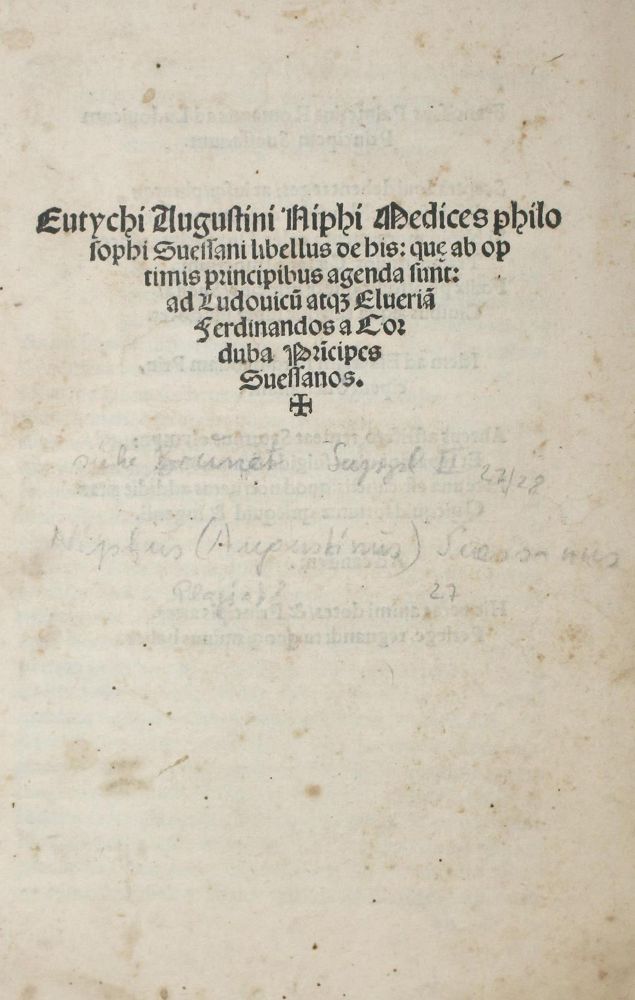 Eutychi Augustini Niphi Medices philo
sophi Suessani libellus de his: quę ab op
timis principibus agenda sunt:
ad Ludouicū atqꝫ Elueriā
Ferdinandos a Cor
duba Prīcipes
Suessanos.
✠
siehe Brunet Suppl II 27/28
Niphus (Augustinus) Suessanus
27